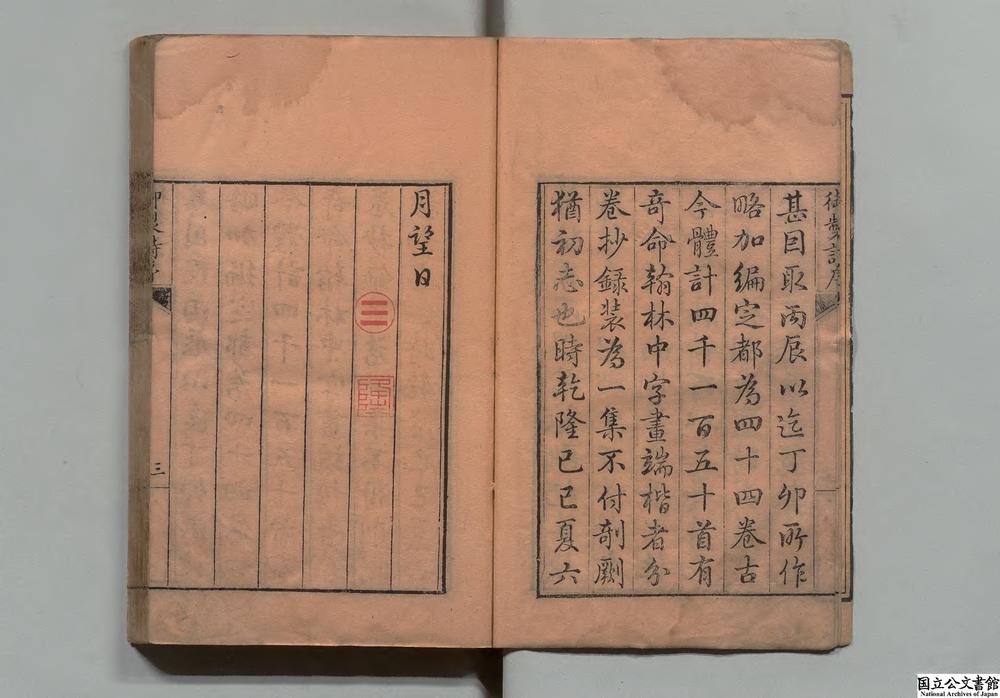 御製詩序
甚囙取丙辰以迄丁卯所作
略加編定都為四十四卷古
今體計四千一百五十首有
奇命翰林中字畫端楷者分
卷抄錄裝為一集不付剞劂
猶初志也時乾隆己巳夏六
月望日
☰
隆
御製詩序
三
国立公文書館
National Archives of Japan